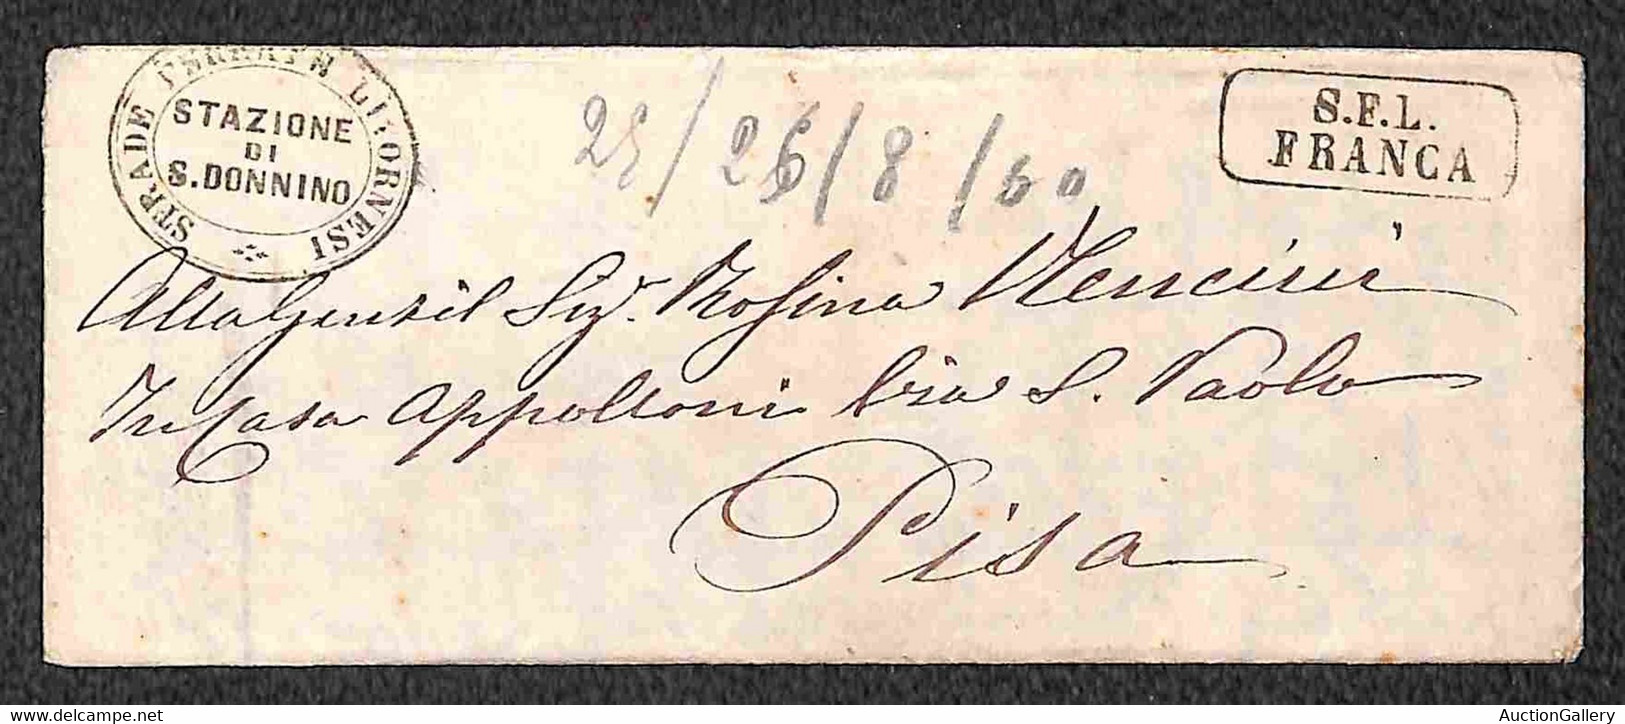 STRADE FERRATE LIVORNESI
STAZIONE
DI
S. DONNINO
S.F.L.
FRANCA
25/26/8/60
Alla Gentil Sigr. Rosina Mencini
In Casa Appolloni Via S. Paolo
Pisa
AuctionGallery